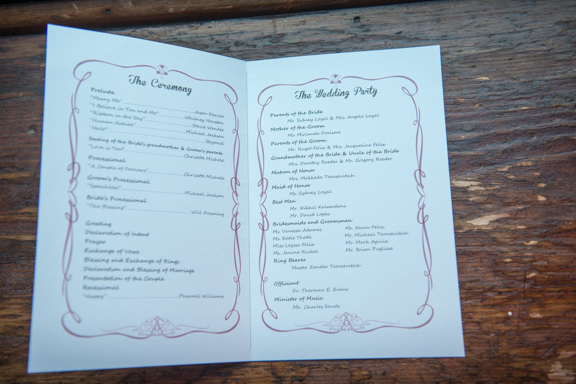 The Ceremony
Prelude
"Marry Me"
"I Believe in You and Me" Whitney Houston
"Ribbon in the Sky" Stevie Wonder
"Human Nature" Michael Jackson
"Halo" Beyoncé
Seating of the Bride's grandmother & Groom's parents
"Love is You" Chrisette Michele
Processional
"A Couple of Forevers" Chrisette Michele
Groom's Processional
"Speechless" Michael Jackson
Bride's Processional
"The Blessing" Will Downing
Greeting
Declaration of Intent
Prayer
Exchange of Vows
Blessing and Exchange of Rings
Declaration and Blessing of Marriage
Presentation of the Couple
Recessional
"Happy" Pharrell Williams
The Wedding Party
Parents of the Bride
Mr. Sidney Loyal & Mrs. Angela Loyal
Mother of the Groom
Ms. Mirlande
Parents of the Groom
Mr. Roget Felix & Mrs. Jacqueline Felix
Grandmother of the Bride & Uncle of the Bride
Mrs. Dorothy Reader & Mr. Gregory Reader
Matron of Honor
Mrs.
Maid of Honor
Ms. Sydney Loyal
Best Men
Mr.
Mr. David Lopes
Bridesmaids and Groomsmen
Ms. Vanessa Adames Mr. Kevin Felix
Ms. Katie Thute Mr. Michael
Miss Leyssa Felix Mr. Mark Aprile
Ms. Janina Rivera Mr. Brian
Ring Bearer
Master Xander
Officiant
Dr. Therman E. Evans
Minister of Music
Mr. Charles Sands